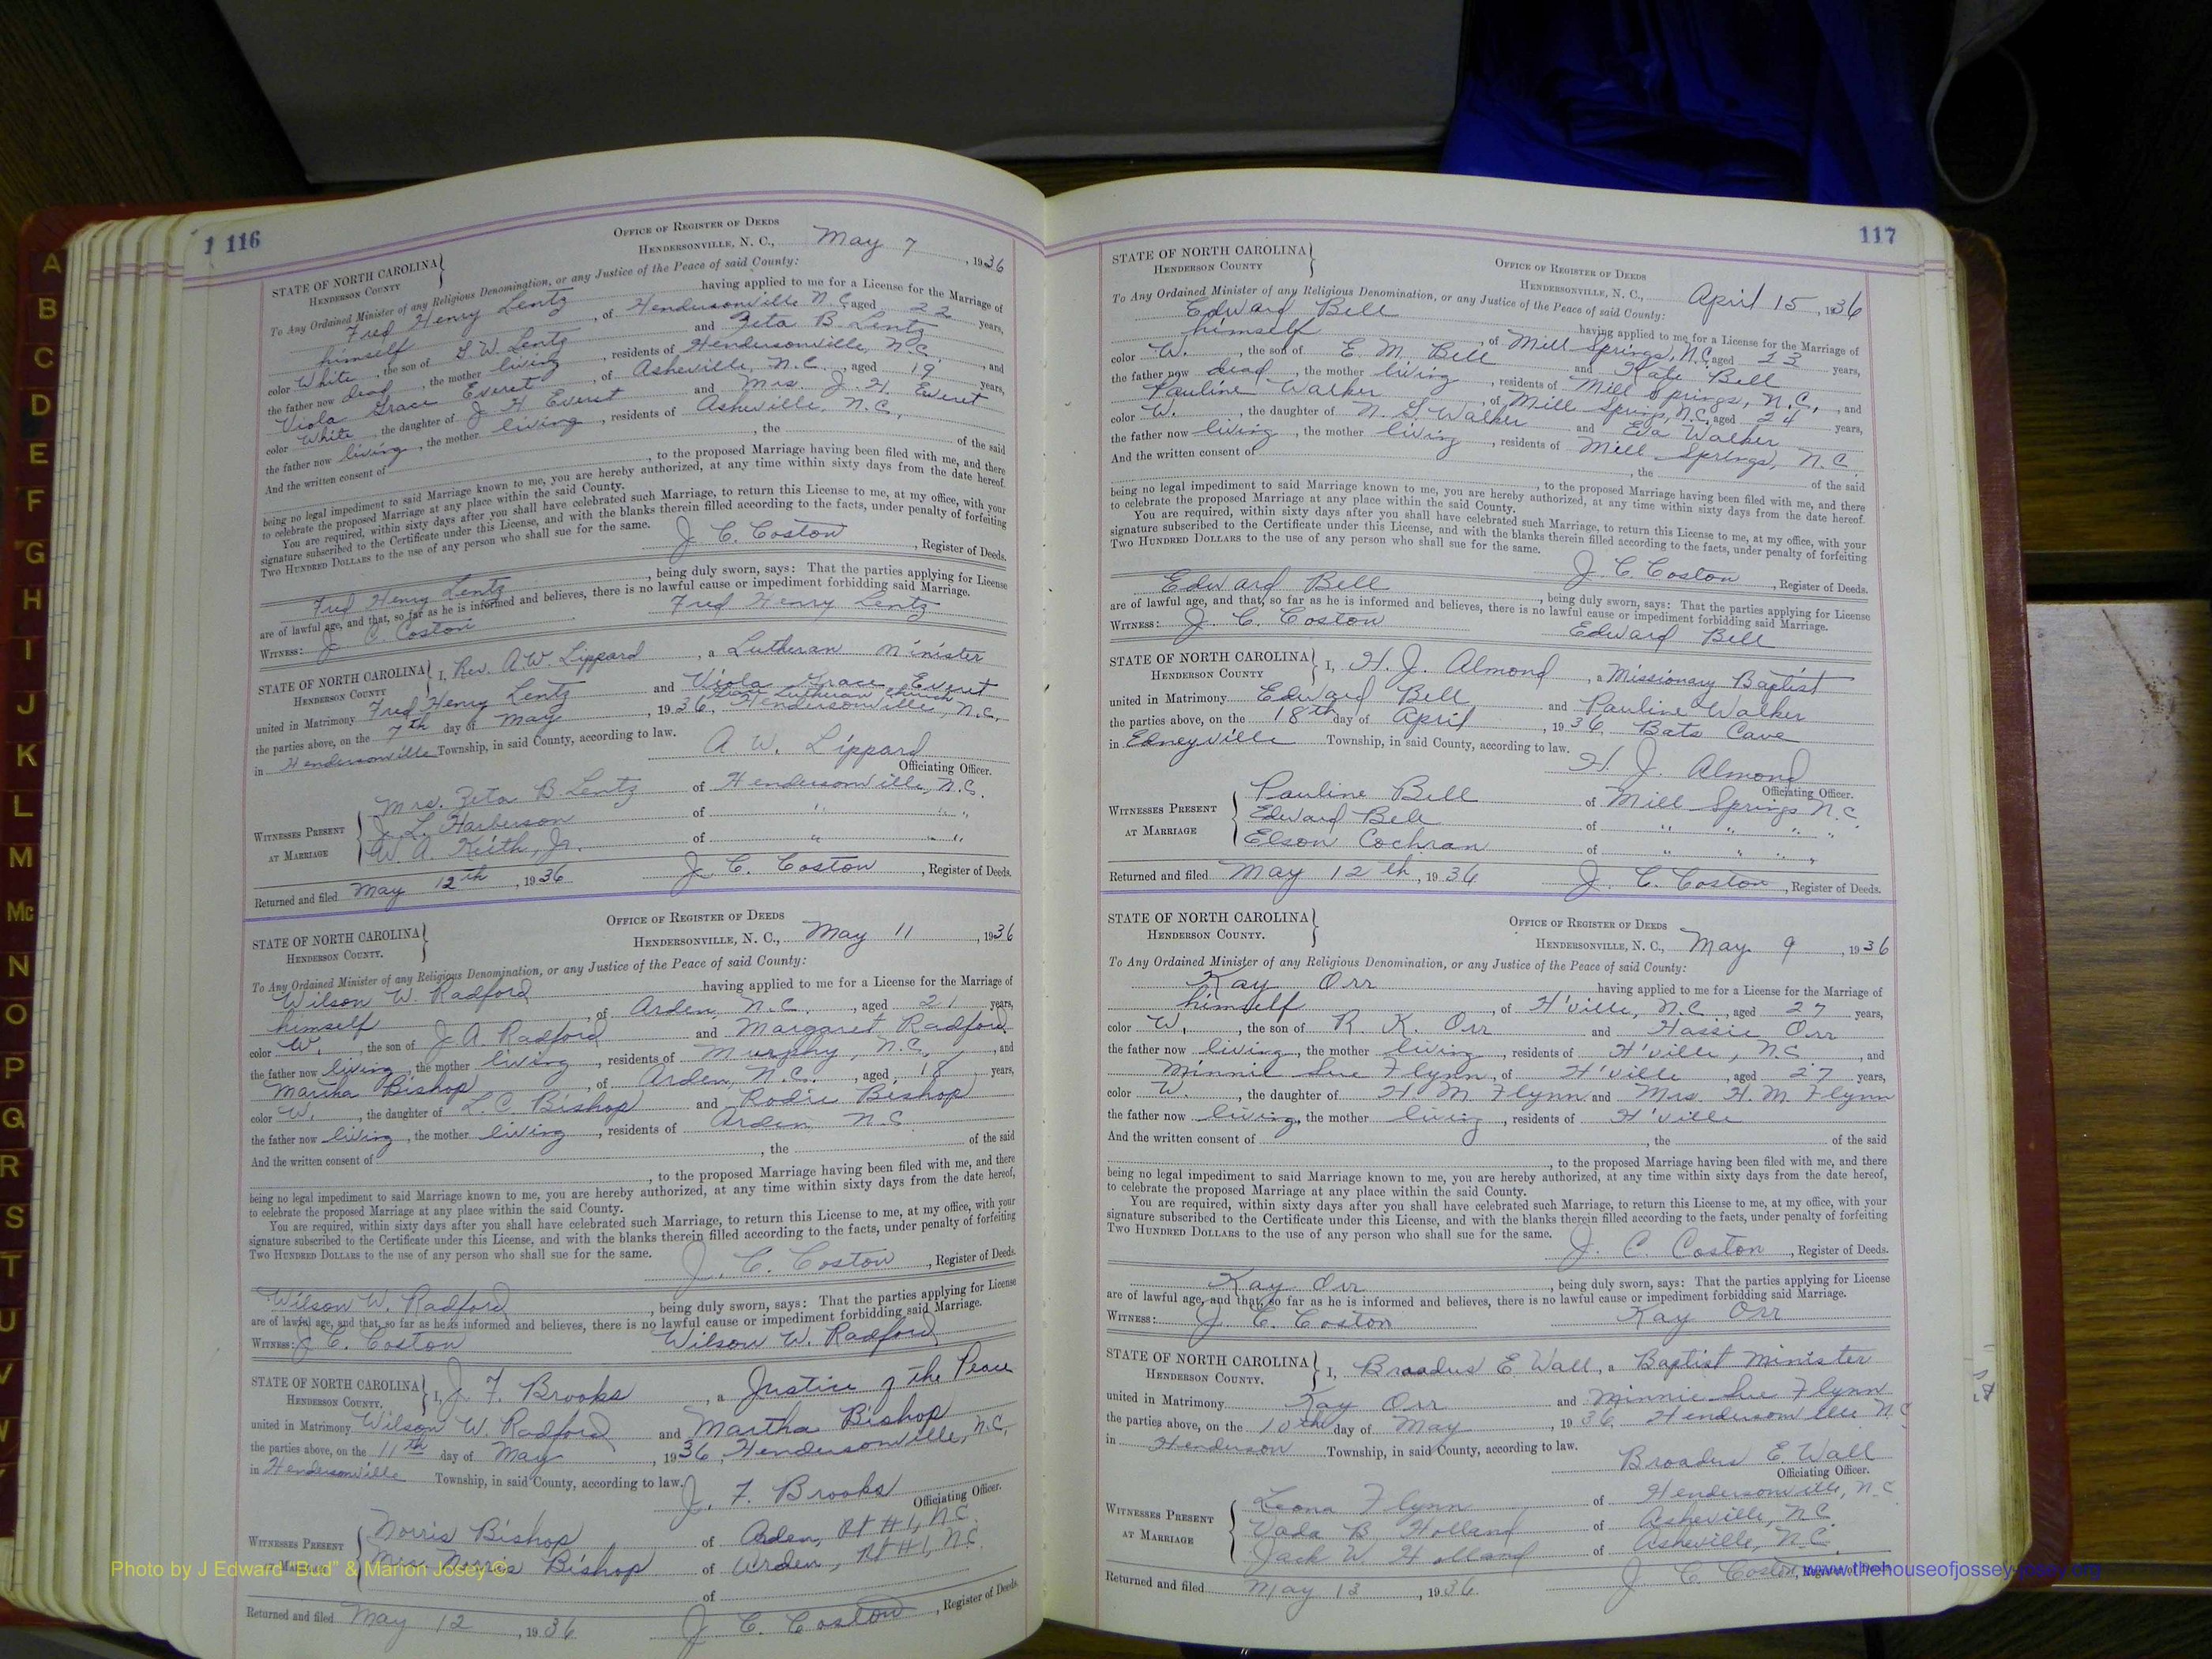 A
B
C
D
E
F
G
H
I
J
K
L
M
Mc
N
O
P
Q
R
S
T
U
V
W
1 116
OFFICE OF REGISTER OF DEEDS
STATE OF NORTH CAROLINA
HENDERSON COUNTY
HENDERSONVILLE, N. C., May 7, 1936
To Any Ordained Minister of any Religious Denomination, or any Justice of the Peace of said County:
Fred Henry Lentz having applied to me for a License for the Marriage of
himself, of Hendersonville N.C. aged 22 years,
color White, the son of G. W. Lentz and Zeta B. Lentz
the father now dead, the mother living, residents of Hendersonville, N.C., and
Viola Grace Everet, of Asheville, N.C., aged 19 years,
color White, the daughter of J H Everet and Mrs. J. H. Everet
the father now living, the mother living, residents of Asheville, N.C.,
And the written consent of , the of the said
, to the proposed Marriage having been filed with me, and there
being no legal impediment to said Marriage known to me, you are hereby authorized, at any time within sixty days from the date hereof.
to celebrate the proposed Marriage at any place within the said County.
You are required, within sixty days after you shall have celebrated such Marriage, to return this License to me, at my office, with your
signature subscribed to the Certificate under this License, and with the blanks therein filled according to the facts, under penalty of forfeiting
TWO HUNDRED DOLLARS to the use of any person who shall sue for the same.
J. C. Coston, Register of Deeds.
Fred Henry Lentz, being duly sworn, says: That the parties applying for License
are of lawful age, and that, so far as he is informed and believes, there is no lawful cause or impediment forbidding said Marriage.
WITNESS: J. C. Coston Fred Henry Lentz
STATE OF NORTH CAROLINA
HENDERSON COUNTY
I, Rev. A.W. Lippard, a Lutheran Minister
united in Matrimony Fred Henry Lentz and Viola Grace Everet
Lutheran Church
the parties above, on the 7th day of May, 1936, Hendersonville, N.C.
in Hendersonville Township, in said County, according to law.
A. W. Lippard
Officiating Officer.
WITNESSES PRESENT
AT MARRIAGE
Mrs. Zeta B Lentz of Hendersonville, N.C.
J. L. Harberson of " " "
W. A. Keith, Jr. of " " "
Returned and filed May 12th, 1936 J. C. Coston, Register of Deeds.
OFFICE OF REGISTER OF DEEDS
STATE OF NORTH CAROLINA
HENDERSON COUNTY.
HENDERSONVILLE, N. C., May 11, 1936
To Any Ordained Minister of any Religious Denomination, or any Justice of the Peace of said County:
Wilson W. Radford having applied to me for a License for the Marriage of
himself, of Arden, N.C., aged 21 years,
color W., the son of J. A. Radford and Margaret Radford
the father now living, the mother living, residents of Murphy, N.C., and
Martha Bishop, of Arden, N.C., aged 18 years,
color W., the daughter of L.C. Bishop and Rodie Bishop
the father now living, the mother living, residents of Arden N.C.
And the written consent of , the of the said
, to the proposed Marriage having been filed with me, and there
being no legal impediment to said Marriage known to me, you are hereby authorized, at any time within sixty days from the date hereof,
to celebrate the proposed Marriage at any place within the said County.
You are required, within sixty days after you shall have celebrated such Marriage, to return this License to me, at my office, with your
signature subscribed to the Certificate under this License, and with the blanks therein filled according to the facts, under penalty of forfeiting
TWO HUNDRED DOLLARS to the use of any person who shall sue for the same.
J. C. Coston, Register of Deeds.
Wilson W. Radford, being duly sworn, says: That the parties applying for License
are of lawful age, and that, so far as he is informed and believes, there is no lawful cause or impediment forbidding said Marriage.
WITNESS: J. C. Coston Wilson W. Radford
STATE OF NORTH CAROLINA
HENDERSON COUNTY.
I, J. F. Brooks, a Justice of the Peace
united in Matrimony Wilson W. Radford and Martha Bishop
the parties above, on the 11th day of May, 1936, Hendersonville, N.C.
in Hendersonville Township, in said County, according to law.
J. F. Brooks
Officiating Officer.
WITNESSES PRESENT
AT MARRIAGE
Norris Bishop of Arden, Rt #1, N.C.
Mrs. Norris Bishop of Arden, Rt #1, N.C.
of
Returned and filed May 12, 1936 J. C. Coston, Register of Deeds.
117
STATE OF NORTH CAROLINA
HENDERSON COUNTY
OFFICE OF REGISTER OF DEEDS
HENDERSONVILLE, N. C., April 15, 1936
To Any Ordained Minister of any Religious Denomination, or any Justice of the Peace of said County:
Edward Bell having applied to me for a License for the Marriage of
himself, of Mill Springs, N.C. aged 23 years,
color W., the son of E. M. Bell and Kate Bell
the father now dead, the mother living, residents of Mill Springs, N.C., and
Pauline Walker, of Mill Springs, N.C. aged 24 years,
color W., the daughter of N. G Walker and Eva Walker
the father now living, the mother living, residents of Mill Springs, N.C.
And the written consent of , the of the said
, to the proposed Marriage having been filed with me, and there
being no legal impediment to said Marriage known to me, you are hereby authorized, at any time within sixty days from the date hereof.
to celebrate the proposed Marriage at any place within the said County.
You are required, within sixty days after you shall have celebrated such Marriage, to return this License to me, at my office, with your
signature subscribed to the Certificate under this License, and with the blanks therein filled according to the facts, under penalty of forfeiting
TWO HUNDRED DOLLARS to the use of any person who shall sue for the same.
J. C. Coston, Register of Deeds.
Edward Bell, being duly sworn, says: That the parties applying for License
are of lawful age, and that, so far as he is informed and believes, there is no lawful cause or impediment forbidding said Marriage.
WITNESS: J. C. Coston Edward Bell
STATE OF NORTH CAROLINA
HENDERSON COUNTY
I, H. J. Almond, a Missionary Baptist
united in Matrimony Edward Bell and Pauline Walker
the parties above, on the 18th day of April, 1936, Bats Cave
in Edneyville Township, in said County, according to law.
H. J. Almond
Officiating Officer.
WITNESSES PRESENT
AT MARRIAGE
Pauline Bell of Mill Springs N.C.
Edward Bell of " " " "
Elson Cochran of " " " "
Returned and filed May 12th, 1936 J. C. Coston, Register of Deeds.
STATE OF NORTH CAROLINA
HENDERSON COUNTY.
OFFICE OF REGISTER OF DEEDS
HENDERSONVILLE, N. C., May 9, 1936
To Any Ordained Minister of any Religious Denomination, or any Justice of the Peace of said County:
Kay Orr having applied to me for a License for the Marriage of
himself, of H'ville, N.C., aged 27 years,
color W., the son of R. K. Orr and Hassie Orr
the father now living, the mother living, residents of H'ville, N.C., and
Minnie Sue Flynn, of H'ville, aged 27 years,
color W., the daughter of H M. Flynn and Mrs. H. M. Flynn
the father now living, the mother living, residents of H'ville
And the written consent of , the of the said
, to the proposed Marriage having been filed with me, and there
being no legal impediment to said Marriage known to me, you are hereby authorized, at any time within sixty days from the date hereof,
to celebrate the proposed Marriage at any place within the said County.
You are required, within sixty days after you shall have celebrated such Marriage, to return this License to me, at my office, with your
signature subscribed to the Certificate under this License, and with the blanks therein filled according to the facts, under penalty of forfeiting
TWO HUNDRED DOLLARS to the use of any person who shall sue for the same.
J. C. Coston, Register of Deeds.
Kay Orr, being duly sworn, says: That the parties applying for License
are of lawful age, and that, so far as he is informed and believes, there is no lawful cause or impediment forbidding said Marriage.
WITNESS: J. C. Coston Kay Orr
STATE OF NORTH CAROLINA
HENDERSON COUNTY.
I, Broadus E. Wall, a Baptist Minister
united in Matrimony Kay Orr and Minnie Sue Flynn
the parties above, on the 10th day of May, 1936, Hendersonville N.C
in Henderson Township, in said County, according to law.
Broadus E. Wall
Officiating Officer.
WITNESSES PRESENT
AT MARRIAGE
Leona Flynn of Hendersonville, N.C
Vada B. Holland of Asheville, N.C.
Jack W. Holland of Asheville, N.C.
Returned and filed May 13, 1936. J. C. Coston,
Photo by J Edward "Bud" & Marion Josey ©
www.thehouseofjossey-josey.org